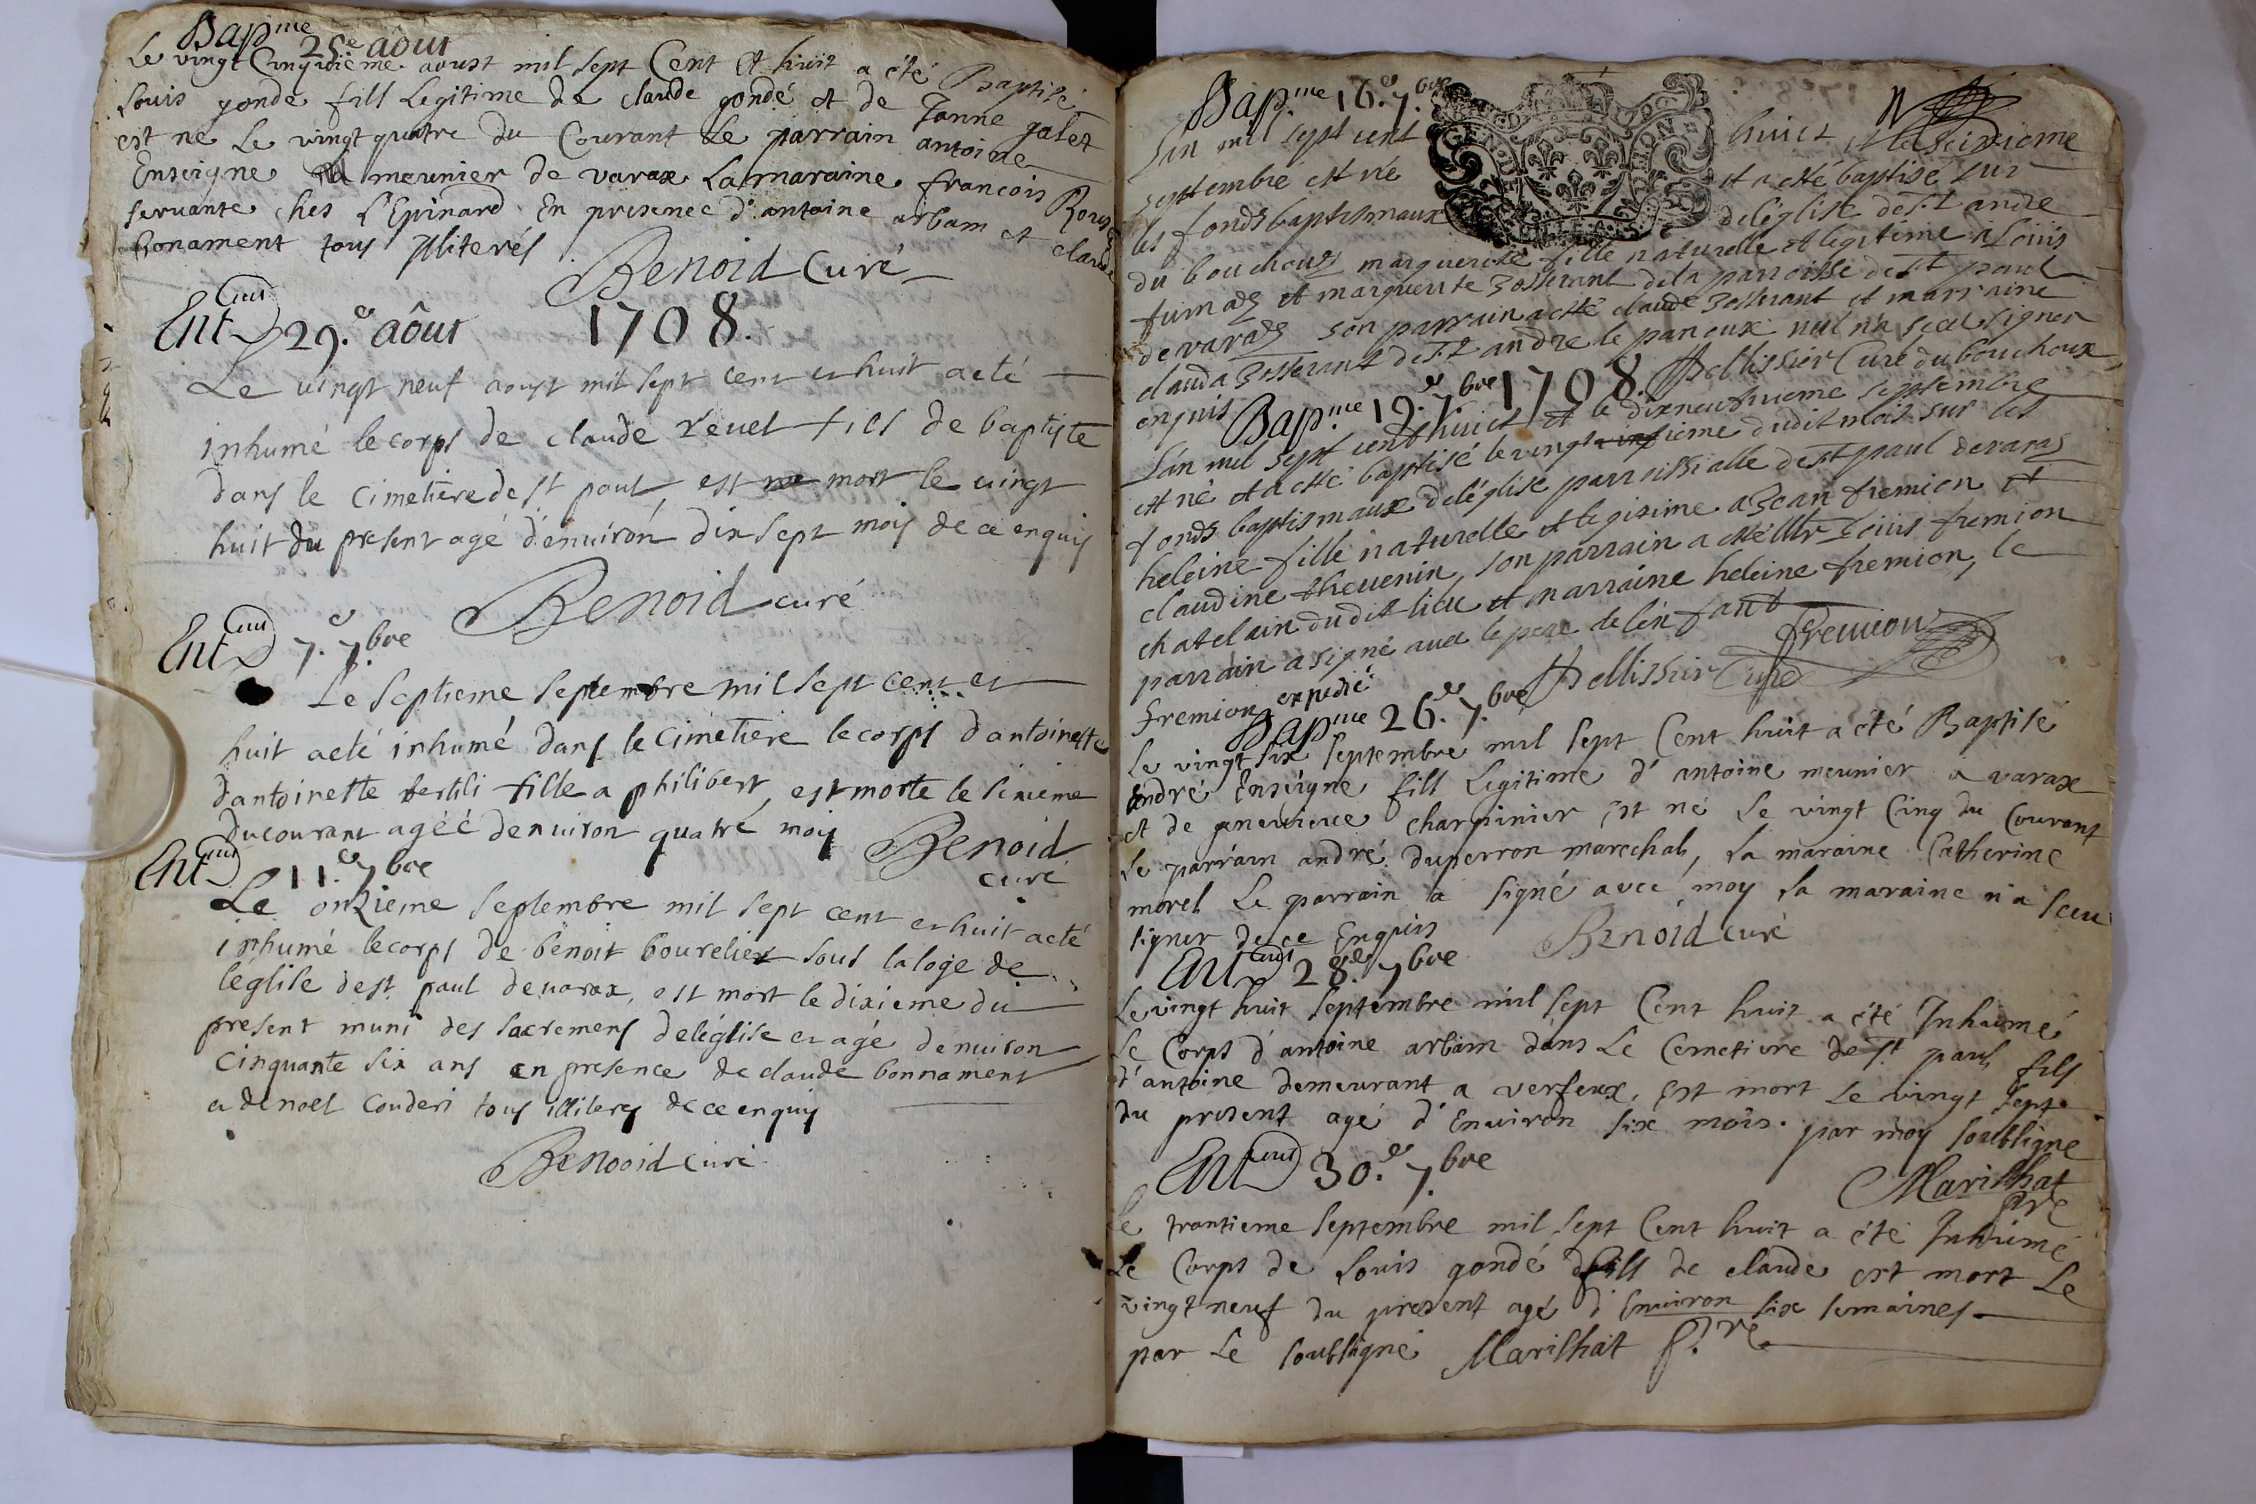 Bap.me 25.e aôut
Le vingt Cinquieme aoust mil sept Cent et huit a été Baptisé
Louis gonde fill Legitime de claude gondé et de Janne galet
est ne Le vingt quatre du Courant Le parrain antoine
Enseigne meunier de varax La maraine francois
servante ches L'Epinard En presence d'antoine arbam et claude
bonament tous Illiterés
Benoid Curé
Ent 29.e aôut 1708.
Le vingt neuf aoust mil sept cent et huit a eté
inhumé le corps de claude revel fils de baptiste
dans le cimetiere de st paul, est mort le vingt
huit du present agé d'environ dix sept mois de ce enquis
Benoid curé
Ent 7.e 7.bre
Le septieme septembre mil sept cent et
huit a eté inhumé dans le cimetiere le corps d'antoinette
d'antoinette fille a philibert, est morte le sixieme
du courant agéé denviron quatre mois Benoid
curé
Ent 11.e 7bre
Le onzieme septembre mil sept cent et huit a eté
inhumé le corps de benoit bourelier sous la loge de
leglise de st paul de varax, est mort le dixieme du
present muni des sacremens de léglise et agé denviron
cinquante six ans en presence de claude bonnament
et de noel couderi tous illiteres de ce enquis
Benooid curé
Bap.me 16.e 7.bre
Lan mil sept cent huict et le seizieme
septembre est né et a esté baptisé sur
les fonds baptismaux de léglise de st andre
du bouchoux marguerite fille naturelle et legitime a Louis
et marguerite de la parroisse de st paul
de varax son parrain a esté claude et marraine
clauda de st andre le panoux nul n'a sceu signer
enquis Pellissier Curé du bouchoux
Bap.me 19.e 7.bre 1708.
Lan mil sept cent huict et le dixneufvieme septembre
est né et a esté baptisé le vingt ieme dudit mois sur les
fonds baptismaux de léglise parroissialle de st paul de varas
heleine fille naturelle et legitime a Jean fremion et
claudine thevenin, son parrain a esté Mr Louis fremion
chatelain dudit lieu et marraine heleine fremion, le
parrain a signé avec le pere de lénfant
fremion expedié Pellissier Curé fremion
Bap.me 26.e 7.bre
Le vingt six septembre mil sept Cent huit a été Baptisé
André Enseigne fill Legitime d'antoine meunier a varax
et de genevieve charpinier est né Le vingt Cinq du Courant
Le parrain andré duperron marechal, La maraine Catherine
morel Le parrain a signé avec moy La maraine n'a sceu
signer de ce Enquis Benoid curé
Ent 28.e 7bre
Le vingt huit septembre mil sept Cent huit a été Inhumé
Le Corps d'antoine arbam dans Le Cemetiere de st paul fils
d'antoine demeurant a verfeux, Est mort Le vingt sept
du present agé d'Environ six mois. par moy soubsigné
Marilhat
ptre
Ent 30.e 7.bre
Le trantieme septembre mil sept Cent huit a été Inhumé
Le Corps de Louis gondé fill de claude est mort Le
vingt neuf du present agé d'Environ six semaines
par Le soubsigné Marilhat ptre